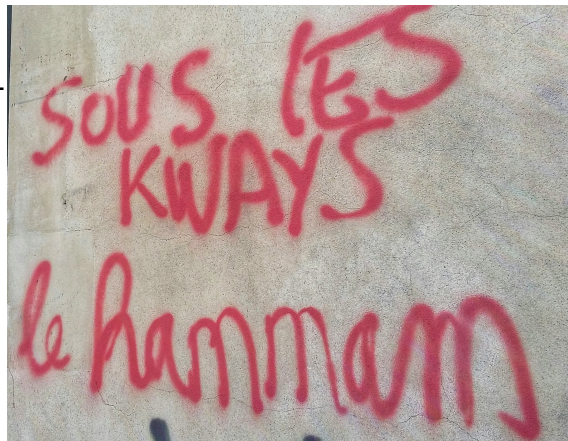 SOUS lES
KWAYS
le hammam